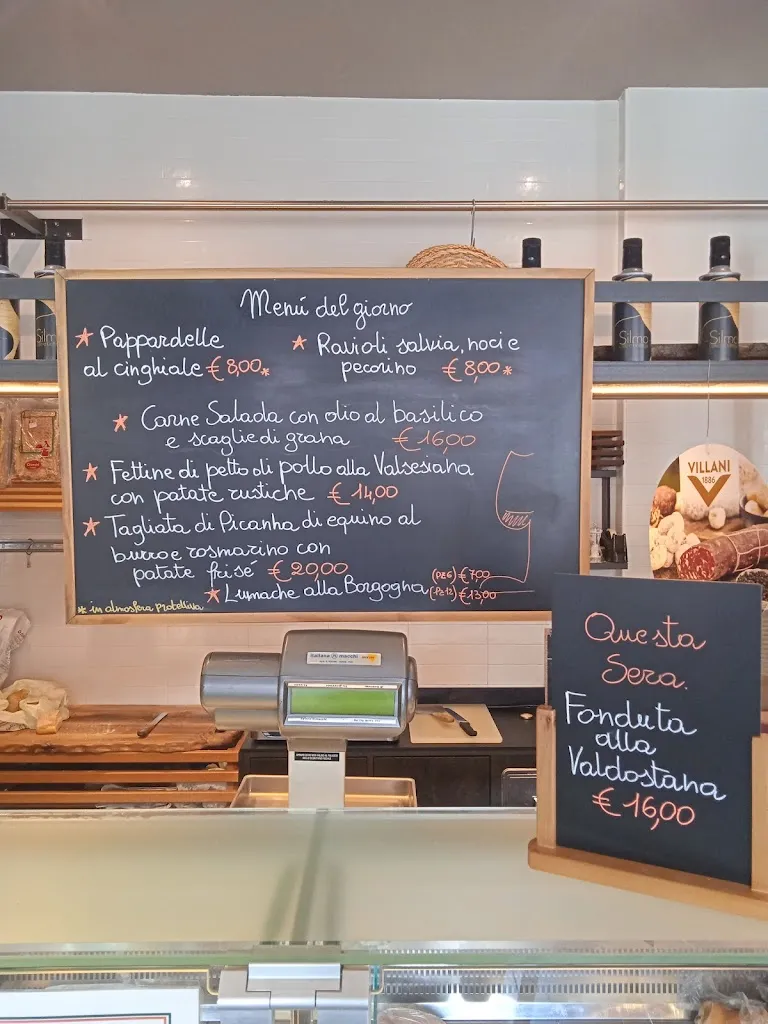 Menú del giorno
* Pappardelle
al cinghiale € 8,00*
* Ravioli salvia, noci e
pecorino € 8,00*
* Carne Salada con olio al basilico
e scaglie di grana € 16,00
* Fettine di petto di pollo alla Valsesiana
con patate rustiche € 14,00
* Tagliata di Picanha di equino al
burro e rosmarino con
patate frisé € 20,00
* Lumache alla Borgogna (PZ 6) € 7,00
(PZ 12) € 13,00
* in atmosfera protettiva
Questa
Sera.
Fonduta
alla
Valdostana
€ 16,00
VILLANI
1886
italiana macchi
Silmo
Silmo